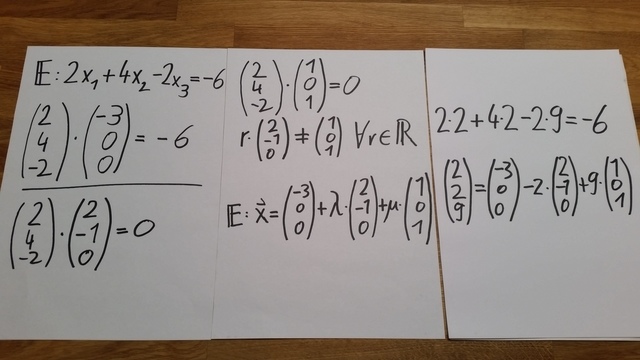 E: 2x₁+4x₂-2x₃=-6
(2 4 -2)·(-3 0 0)=-6
(2 4 -2)·(2 -1 0)=0
(2 4 -2)·(1 0 1)=0
r·(2 -1 0)≠(1 0 1) ∀r∈ℝ
E: x⃗=(-3 0 0)+λ·(2 -1 0)+μ·(1 0 1)
2·2+4·2-2·9=-6
(2 2 9)=(-3 0 0)-2·(2 -1 0)+9·(1 0 1)